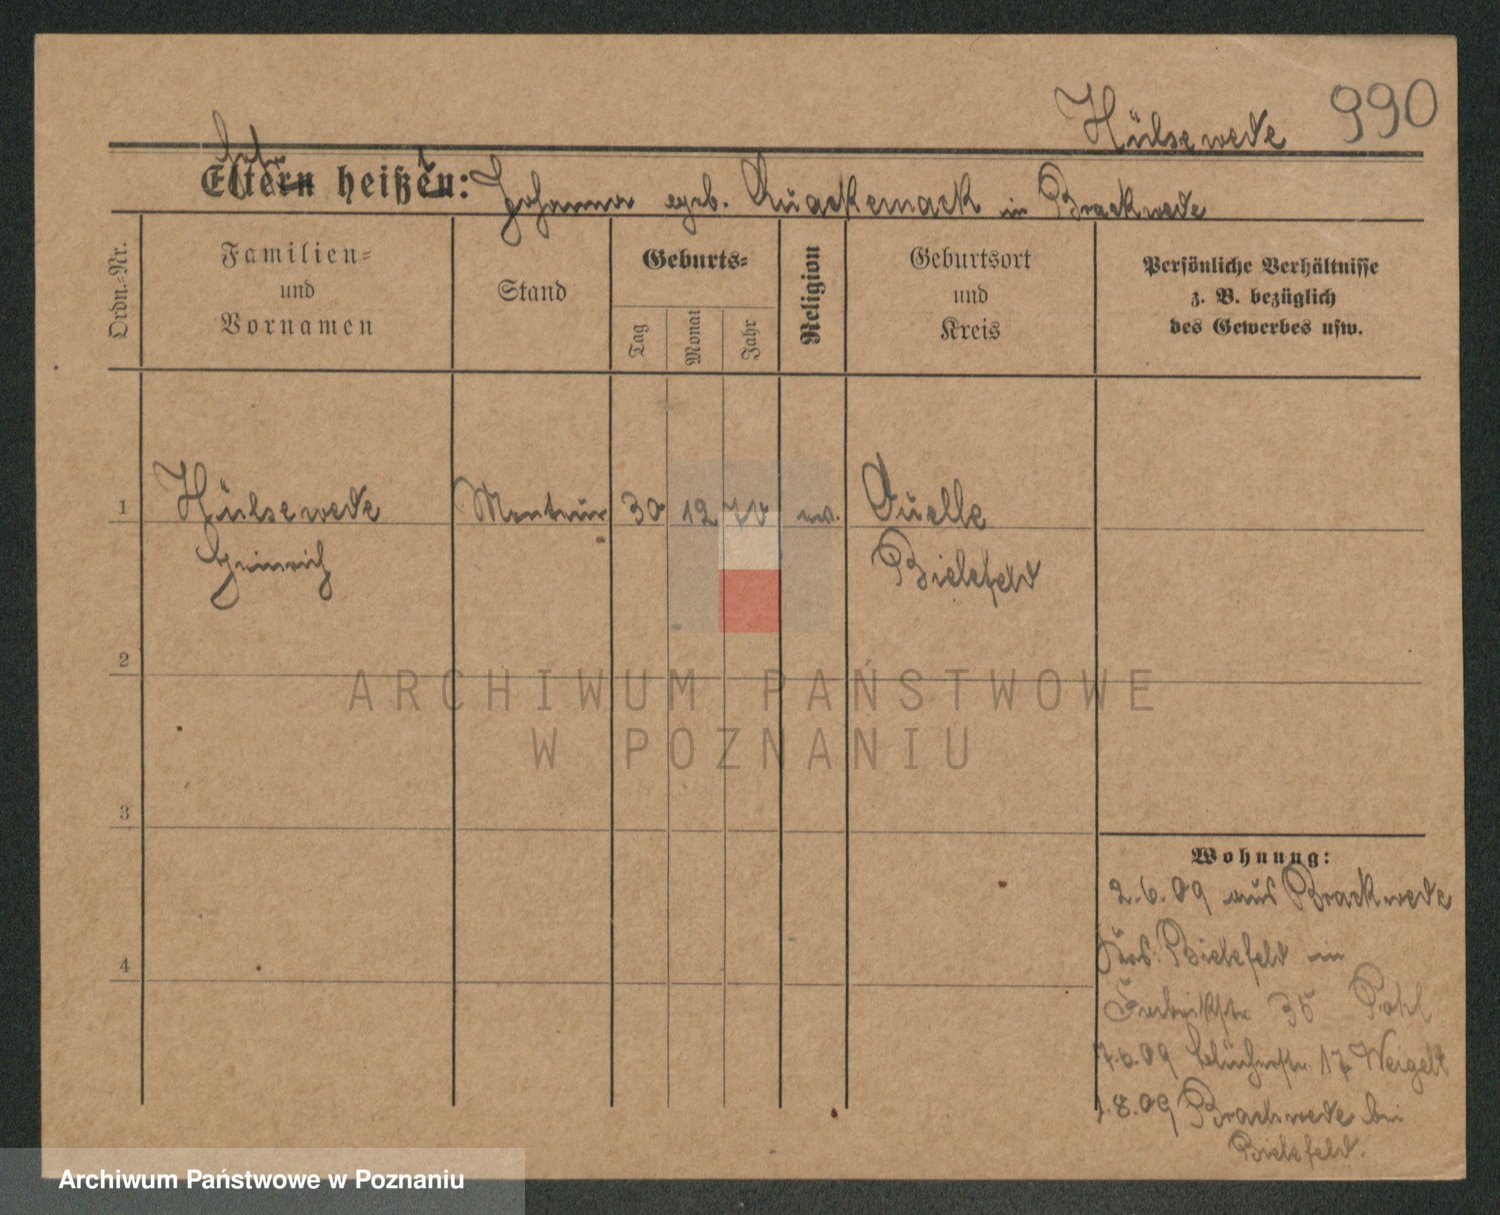 Hülsewede 990
Eltern heißen: Johanna geb. Quackernack in Brackwede
Ordn.-Nr.
Familien-
und
Vornamen
Stand
Geburts-
Tag
Monat
Jahr
Religion
Geburtsort
und
Kreis
Persönliche Verhältnisse
z. B. bezüglich
des Gewerbes usw.
1 Hülsewede Monteur 30 12 70 ev. Quelle
Heinrich Bielefeld
2
3
4
Wohnung:
2.6.09 aus Brackwede
Krs. Bielefeld in
Fabrikstr 35 Pohl
7.6.09 Blücherstr. 17 Weigelt
1.8.09 Brackwede bei
Bielefeld.
ARCHIWUM PAŃSTWOWE
W POZNANIU
Archiwum Państwowe w Poznaniu